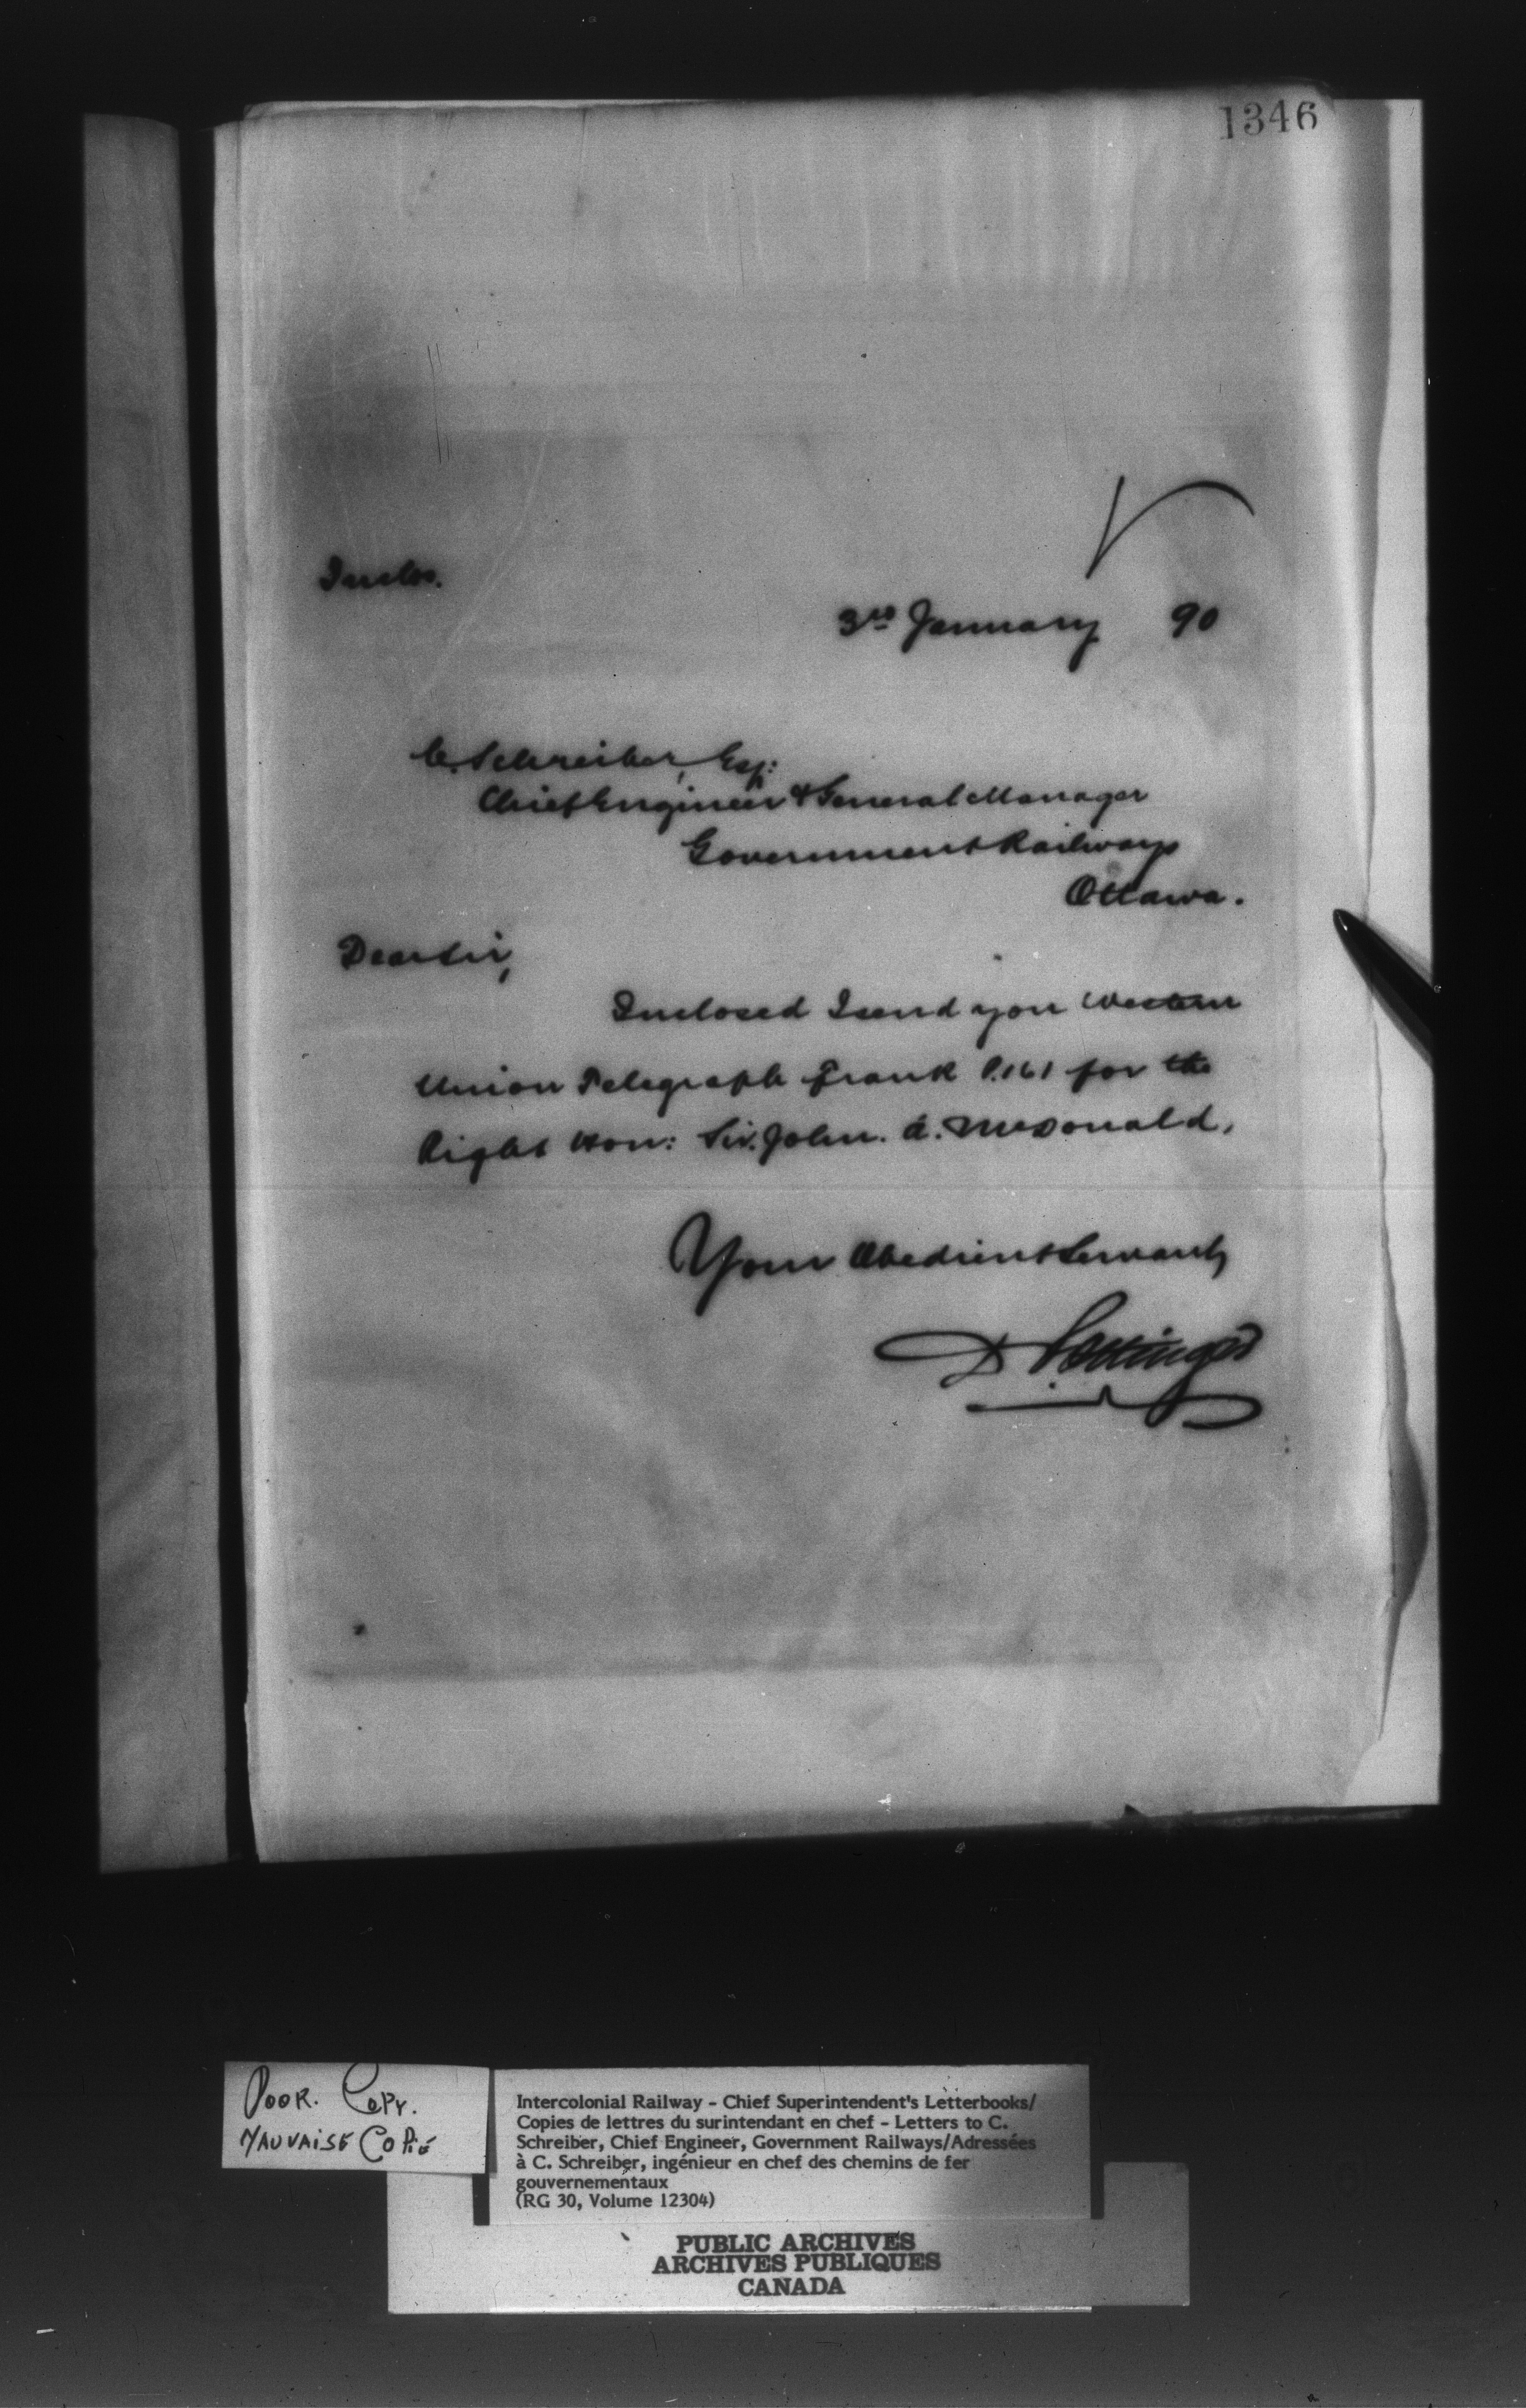 1346
Inclos.
3rd January 90
C. Schreiber, Esq:
Chief Engineer & General Manager
Government Railways
Ottawa.
Dear Sir,
Inclosed I send you Western
Union Telegraph Frank P.161 for the
Right Hon: Sir. John. A. McDonald,
Your Obedient Servant,
D Pottinger
POOR. COPY.
MAUVAISE COPIE
Intercolonial Railway - Chief Superintendent's Letterbooks/
Copies de lettres du surintendant en chef - Letters to C.
Schreiber, Chief Engineer, Government Railways/Adressées
à C. Schreiber, ingénieur en chef des chemins de fer
gouvernementaux
(RG 30, Volume 12304)
PUBLIC ARCHIVES
ARCHIVES PUBLIQUES
CANADA